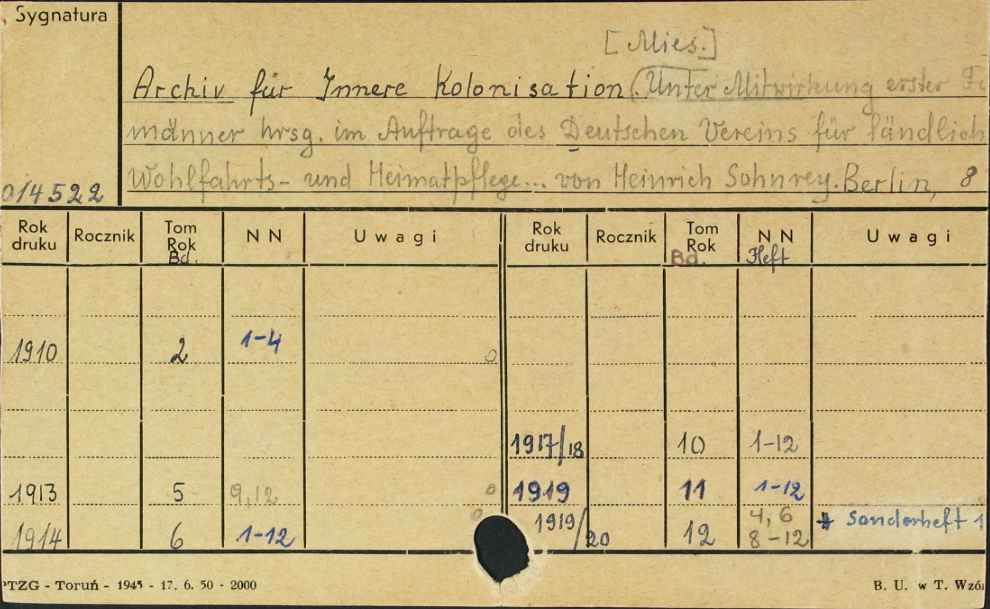 Sygnatura
[Mies.]
Archiv für Innere Kolonisation. (Unter Mitwirkung erster
männer hrsg. im Auftrage des Deutschen Vereins für ländlich
Wohlfahrts- und Heimatpflege... von Heinrich Sohnrey. Berlin, 8
014522
Rok druku Rocznik Tom Rok Bd. NN Uwagi Rok druku Rocznik Tom Rok Bd. NN Heft Uwagi
1910 2 1-4 o
1917/18 10 1-12
1913 5 9,12 o 1919 11 1-12
1914 6 1-12 o 1919/20 12 4, 6 8-12 + Sonderheft 1
PTZG - Toruń - 1945 - 17. 6. 50 - 2000 B. U. w T. Wzó